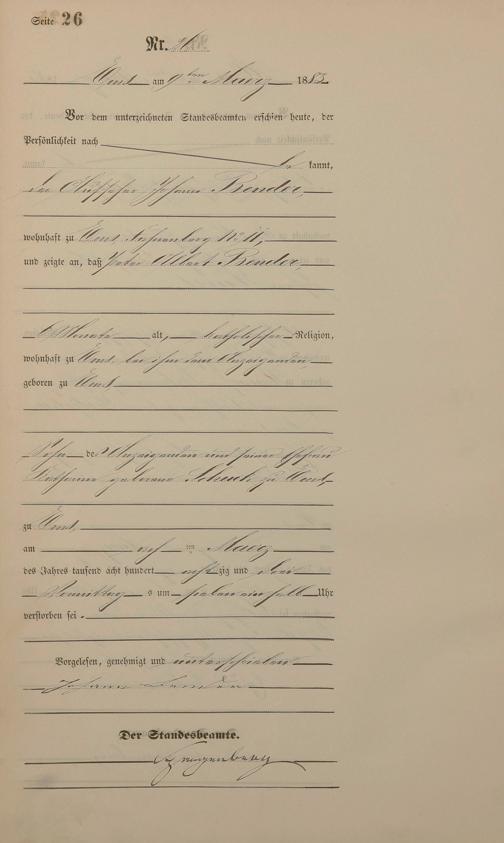 Seite 26
Nr. 26
Ems am 9ten Maerz 1883
Vor dem unterzeichneten Standesbeamten erschien heute, der
Persönlichkeit nach
be kannt,
der Johann Bender,
wohnhaft zu Ems No 11,
und zeigte an, daß Peter Albert Bender,
6 Monate alt, katholischer Religion,
wohnhaft zu Ems bei ihm dem Anzeigenden
geboren zu Ems,
Sohn des Anzeigenden und seiner Ehefrau
Katharina geborene Scheuch zu Ems
zu Ems,
am ten Maerz
des Jahres tausend acht hundert acht zig und drei
Vormittags um sieben ein halb Uhr
verstorben sei.
Vorgelesen, genehmigt und unterschrieben
Johann Bender
Der Standesbeamte.